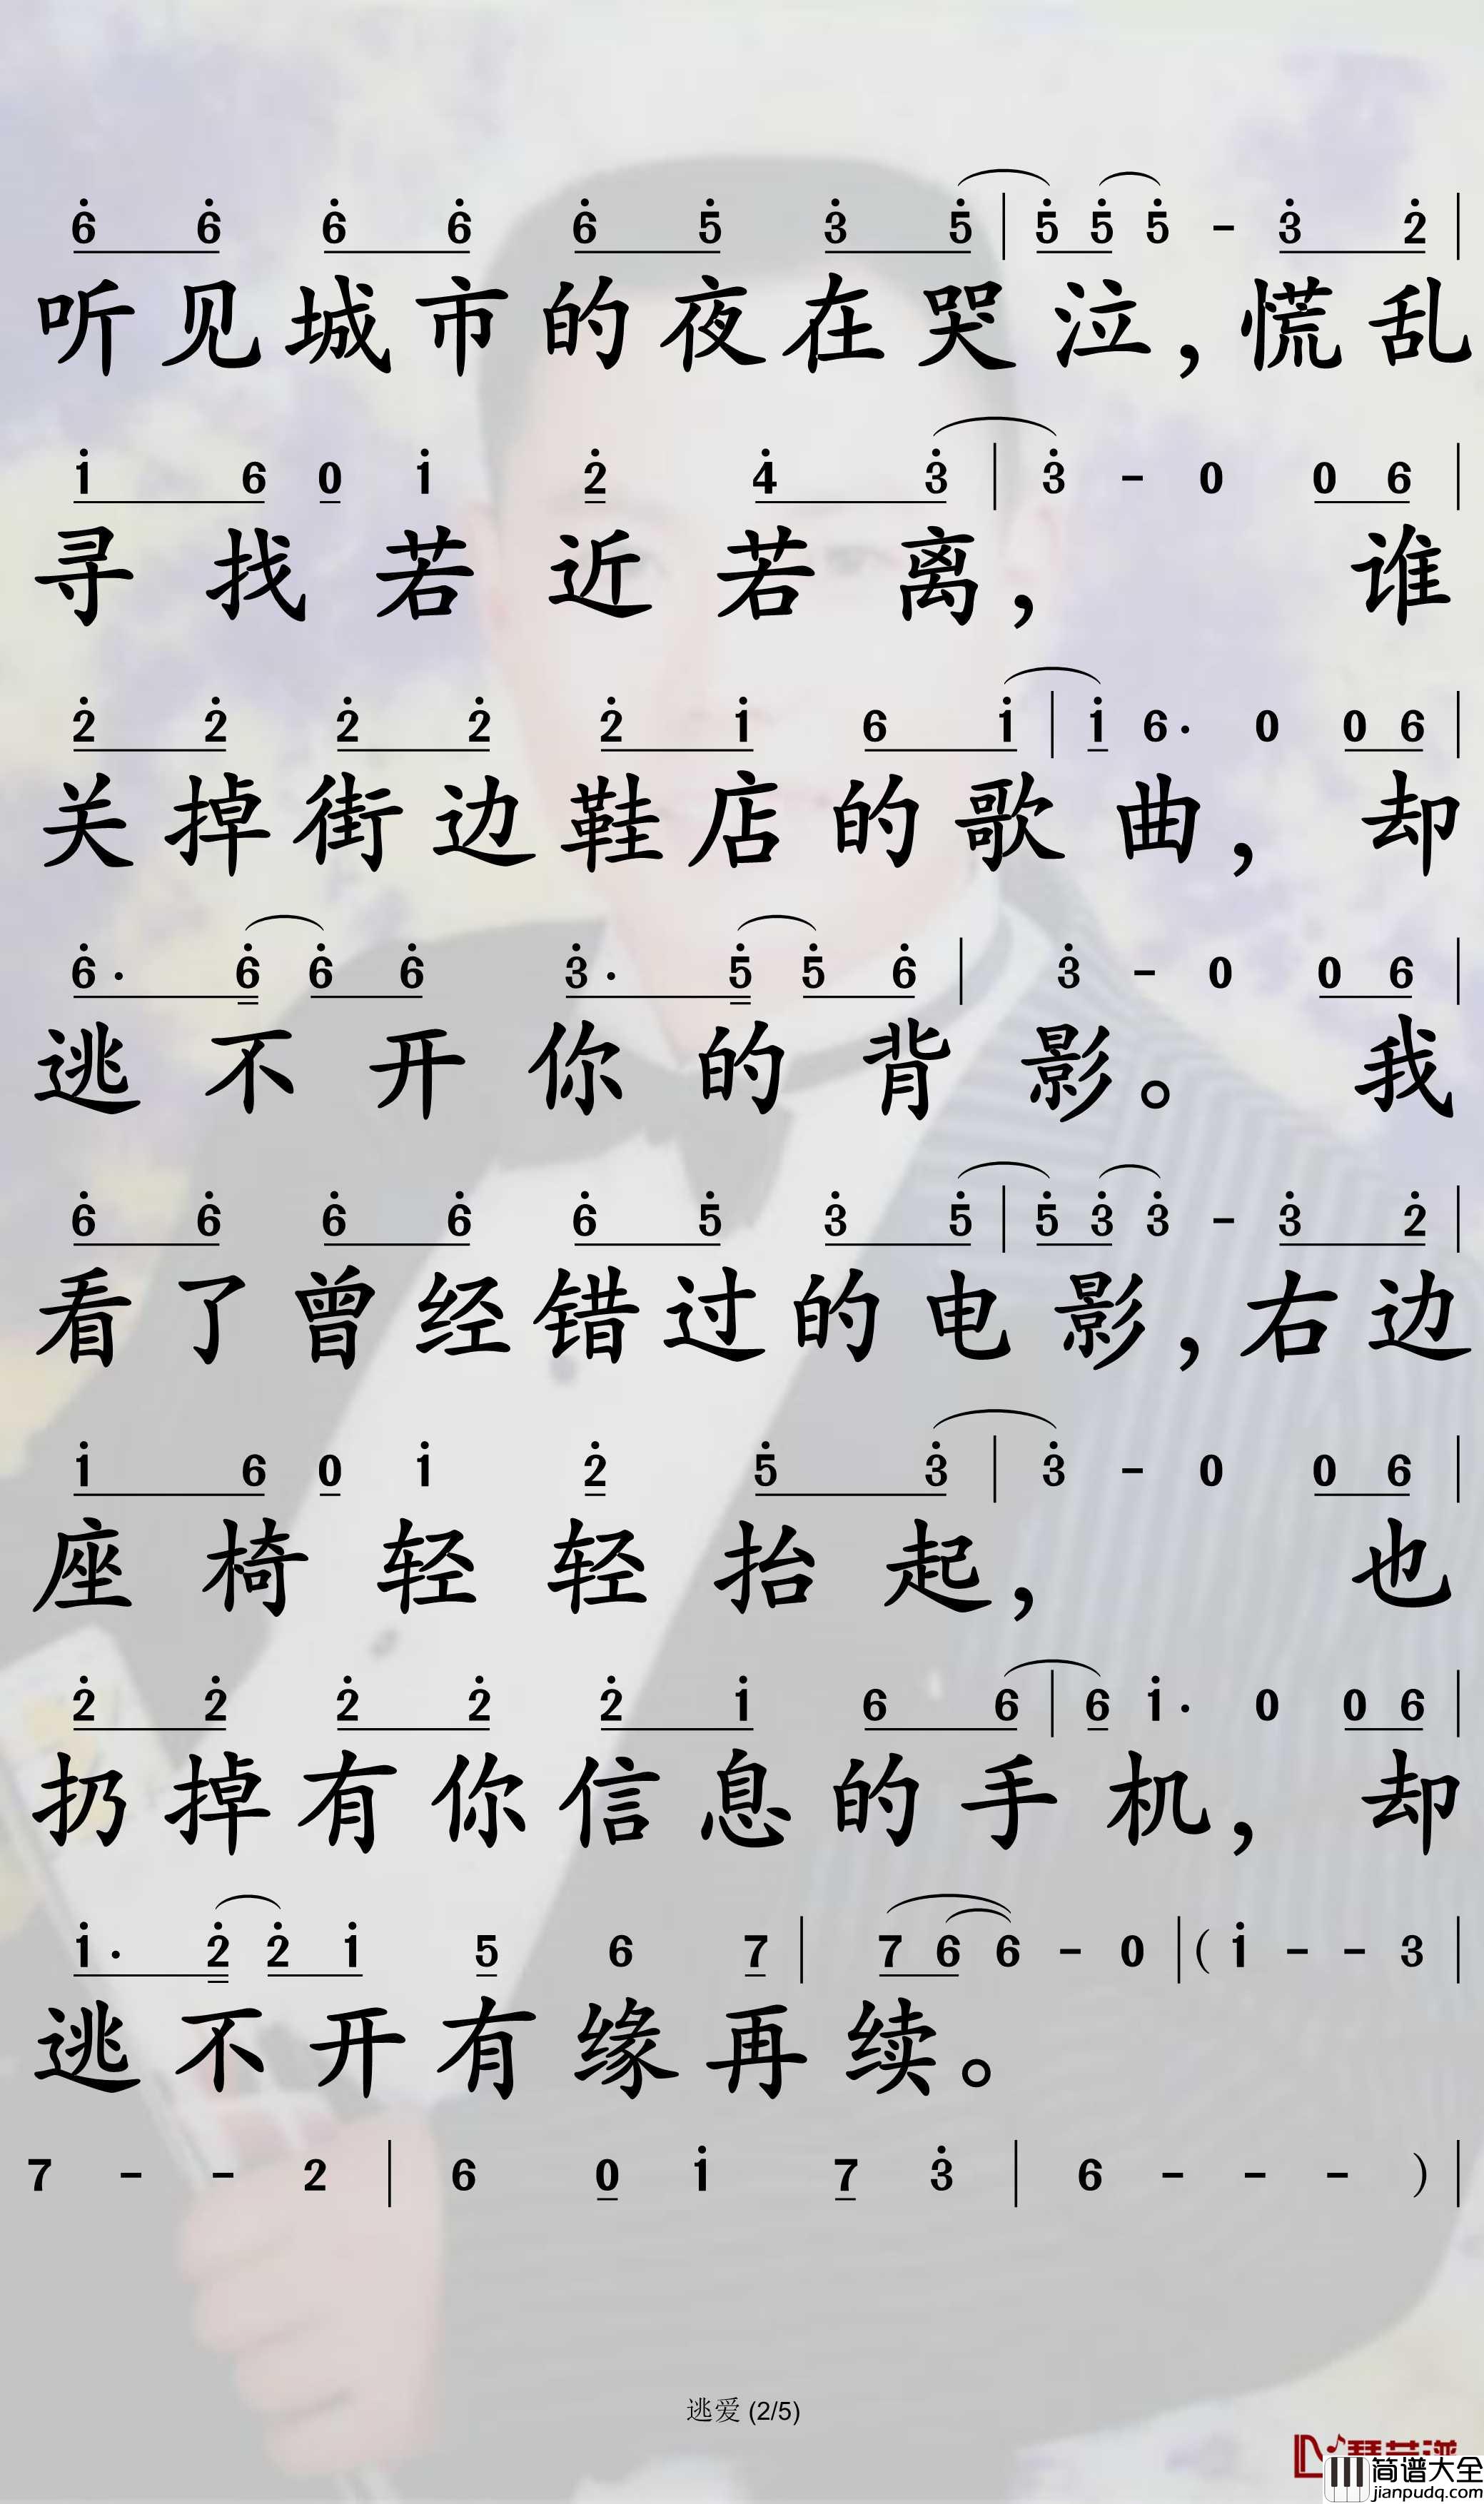 6 6 6 6 6 5 3 5 | 5 5 5 - 3 2 |
听见城市的夜在哭泣，慌乱
1 6 0 1 2 4 3 | 3 - 0 0 6 |
寻找若近若离， 谁
2 2 2 2 2 1 6 1 | 1 6· 0 0 6 |
关掉街边鞋店的歌曲，却
6· 6 6 6 3· 5 5 6 | 3 - 0 0 6 |
逃不开你的背影。 我
6 6 6 6 6 5 3 5 | 5 3 3 - 3 2 |
看了曾经错过的电影，右边
1 6 0 1 2 5 3 | 3 - 0 0 6 |
座椅轻轻抬起， 也
2 2 2 2 2 1 6 6 | 6 1· 0 0 6 |
扔掉有你信息的手机，却
1· 2 2 1 5 6 7 | 7 6 6 - 0 | (1 - - 3 |
逃不开有缘再续。
7 - - 2 | 6 0 1 7 3 | 6 - - - ) |
逃爱 (2/5)
简谱大全
jianpudq.com